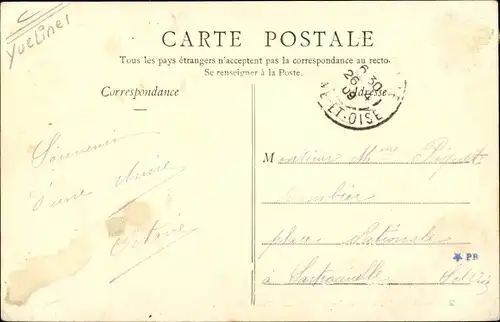 Yvelines
CARTE POSTALE
Tous les pays étrangers n'acceptent pas la correspondance au recto-
Se renseigner à la Poste.
Correspondance
Adresse
6 30
26 4
09
ET-OISE
Souvenir
d'une
Octavie
Monsieur Mme
place Nationale
à Sartrouville
PR